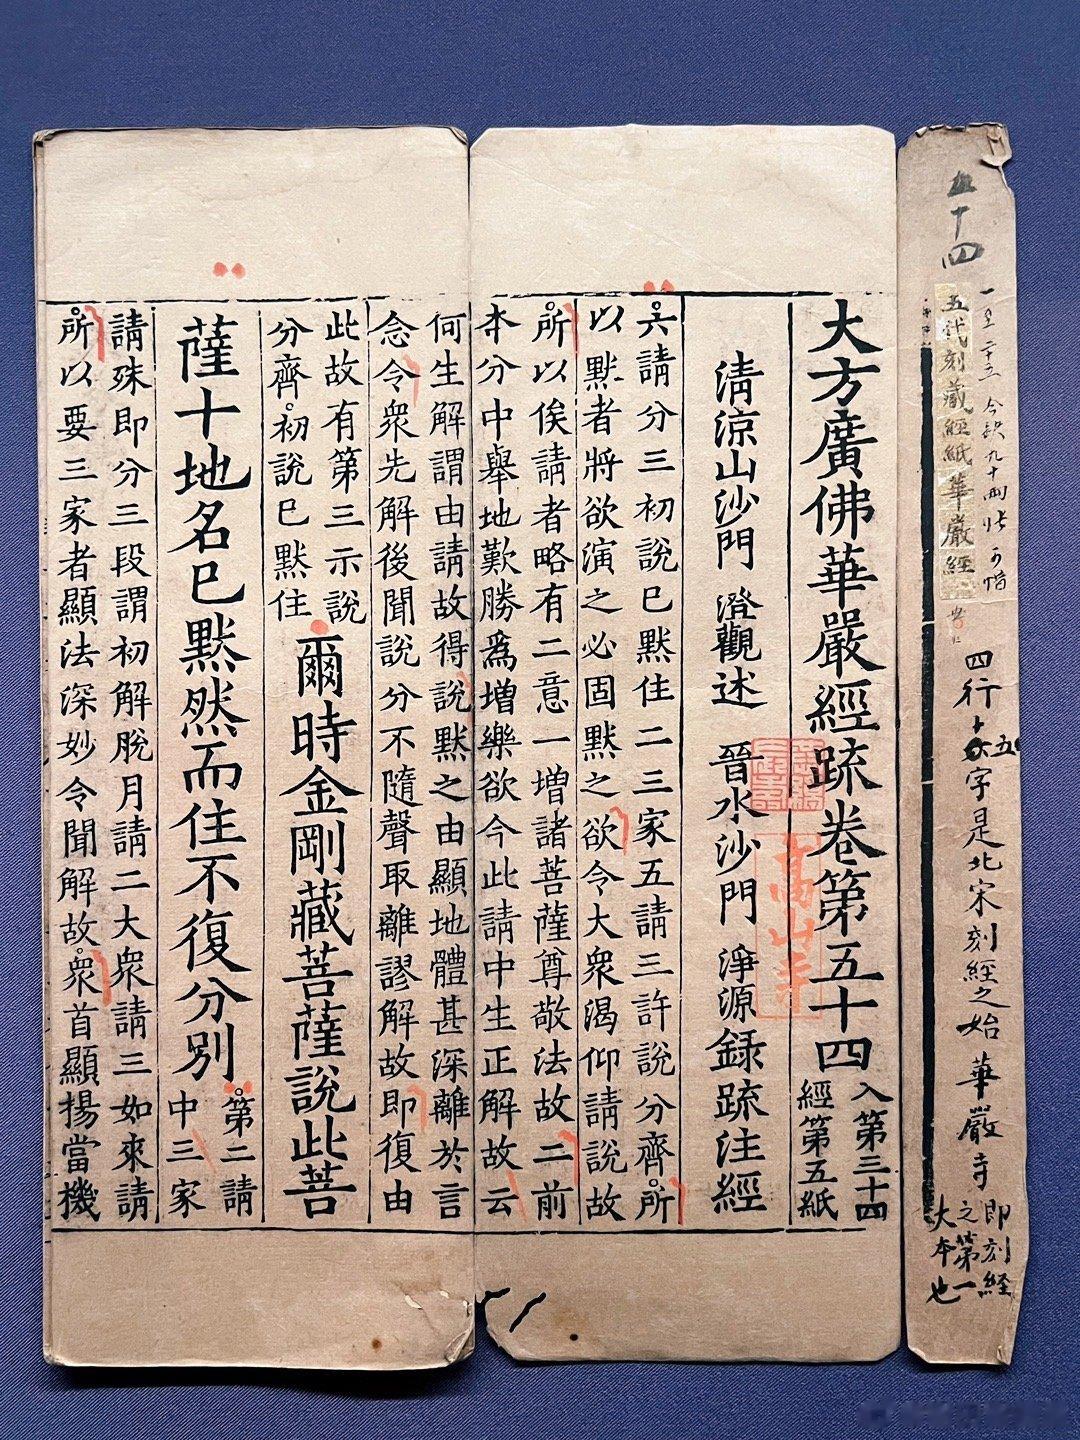 五十四
五代刻藏經紙華嚴經
四行十五字是北宋刻經之始 華嚴寺
即刻經
之第一
大本也
大方廣佛華嚴經疏卷第五十四
入第三十四
經第五紙
高山寺
清涼山沙門 澄觀述 晉水沙門 淨源錄疏注經
六請分三初說已默住二三家五請三許說分齊所
以默者將欲演之必固默之欲令大衆渴仰請說故
所以俟請者略有二意一增諸菩薩尊敬法故二前
本分中舉地歎勝爲增樂欲今此請中生正解故云
何生解謂由請故得說默之由顯地體甚深離於言
念令衆先解後聞說分不隨聲取離謬解故即復由
此故有第三示說
分齊初說已默住
爾時金剛藏菩薩說此菩
薩十地名已默然而住不復分別
第二請
中三家
請殊即分三段謂初解脫月請二大衆請三如來請
所以要三家者顯法深妙令聞解故衆首顯揚當機